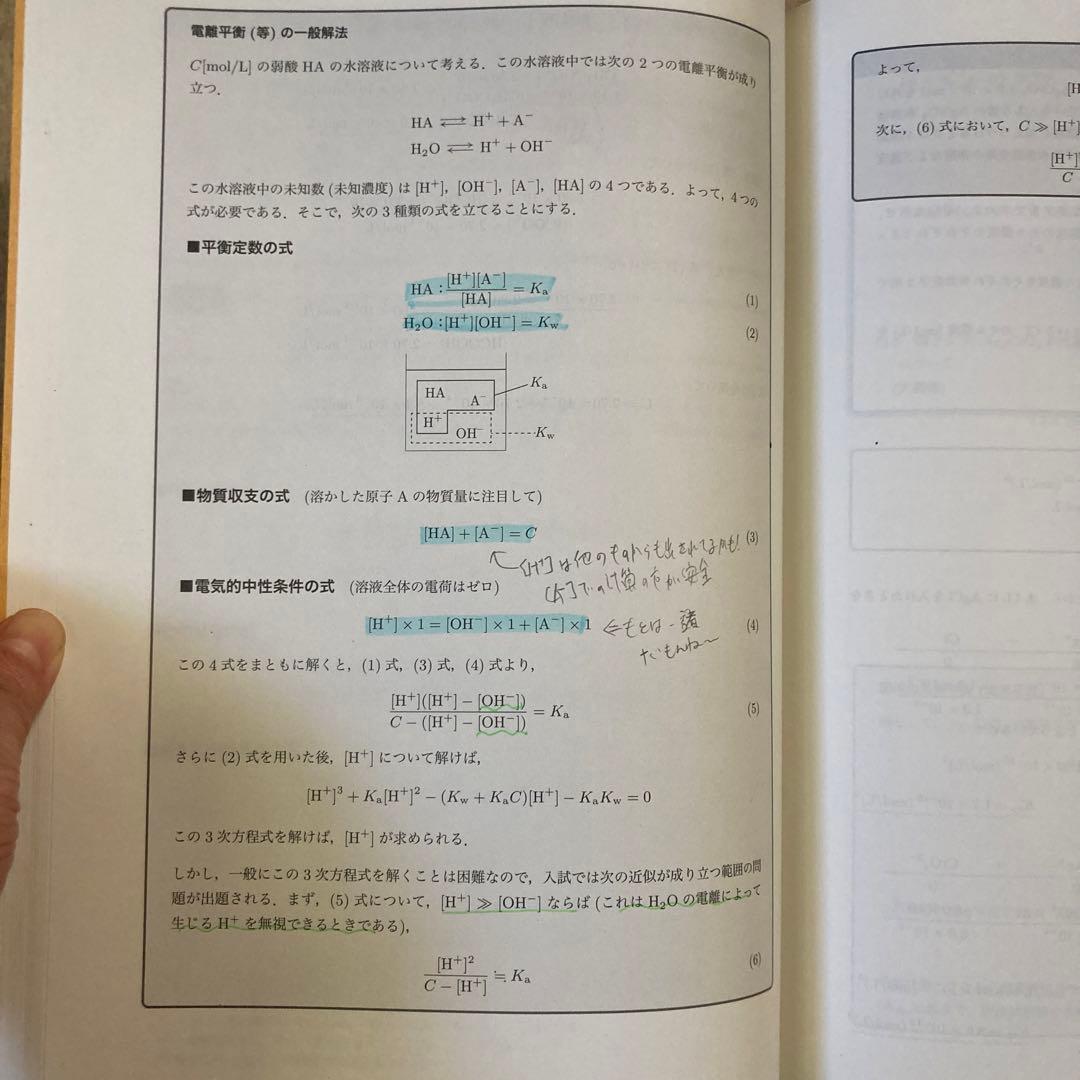 電離平衡 (等) の一般解法
C[mol/L] の弱酸 HA の水溶液について考える．この水溶液中では次の 2 つの電離平衡が成り
立つ．
HA ⇄ H⁺ + A⁻
H₂O ⇄ H⁺ + OH⁻
この水溶液中の未知数 (未知濃度) は [H⁺]，[OH⁻]，[A⁻]，[HA] の 4 つである．よって，4 つの
式が必要である．そこで，次の 3 種類の式を立てることにする．
■平衡定数の式
HA : [H⁺][A⁻]/[HA] = Kₐ (1)
H₂O : [H⁺][OH⁻] = K_w (2)
HA
A⁻
Kₐ
H⁺
OH⁻
K_w
■物質収支の式 (溶かした原子 A の物質量に注目して)
[HA] + [A⁻] = C (3)
[H⁺] は他のものからも出されてるかも!
[A⁻]での計算の方が安全
■電気的中性条件の式 (溶液全体の電荷はゼロ)
[H⁺] × 1 = [OH⁻] × 1 + [A⁻] × 1 (4)
⇐もとは一諸
だもんね〜
この 4 式をまともに解くと，(1) 式，(3) 式，(4) 式より，
[H⁺]([H⁺] − [OH⁻])/C − ([H⁺] − [OH⁻]) = Kₐ (5)
さらに (2) 式を用いた後，[H⁺] について解けば，
[H⁺]³ + Kₐ[H⁺]² − (K_w + KₐC)[H⁺] − KₐK_w = 0
この 3 次方程式を解けば，[H⁺] が求められる．
しかし，一般にこの 3 次方程式を解くことは困難なので，入試では次の近似が成り立つ範囲の問
題が出題される．まず，(5) 式について，[H⁺] ≫ [OH⁻] ならば (これは H₂O の電離によって
生じる H⁺ を無視できるときである)，
[H⁺]²/C − [H⁺] ≒ Kₐ (6)
よって，
[H
次に，(6) 式において，C ≫ [H⁺]
[H⁺]
C